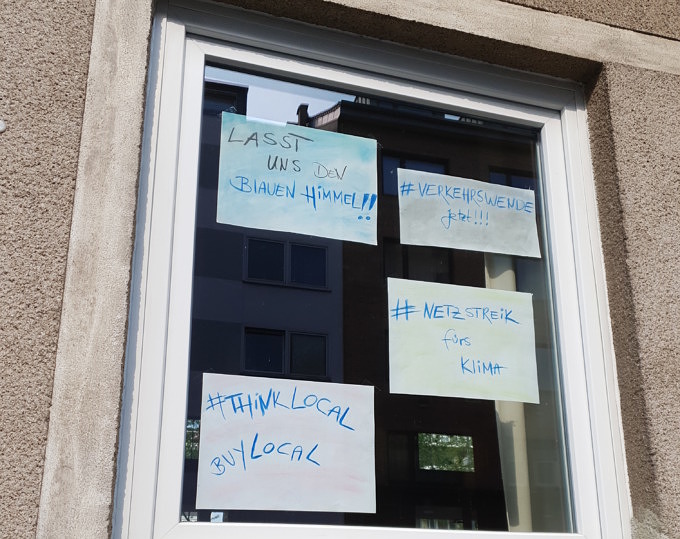 LASST
UNS DeN
BLAUEN HiMMEL!!
#VERKEHRSWENDE
jetzt!!!
#NETZSTREiK
fürs
KLiMA
#THiNKLOCAL
BUYLOCAL